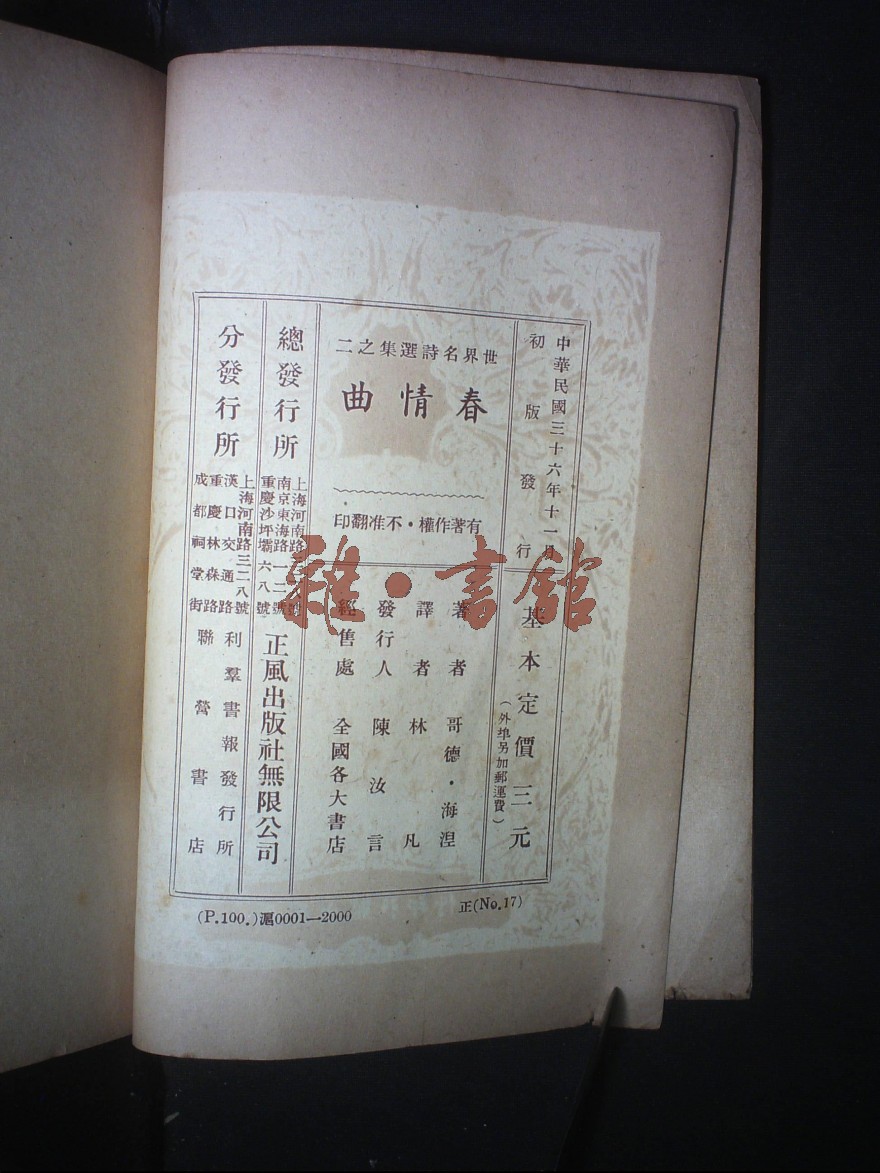 中華民國三十六年十一月
初版發行
基本定價三元
(外埠另加郵運費)
世界名詩選集之二
春情曲
有著作權·不准翻印
著者 哥德·海涅
譯者 林凡
發行人 陳汝言
經售處 全國各大書店
總發行所
上海河南路
南京東海路一二號
重慶沙坪壩六八號
正風出版社無限公司
分發行所
上海河南路三二八號
漢口交通路
重慶林森路
成都祠堂街
利羣書報發行所
聯營書店
(P.100.)滬0001—2000
正(No.17)
雜·書館